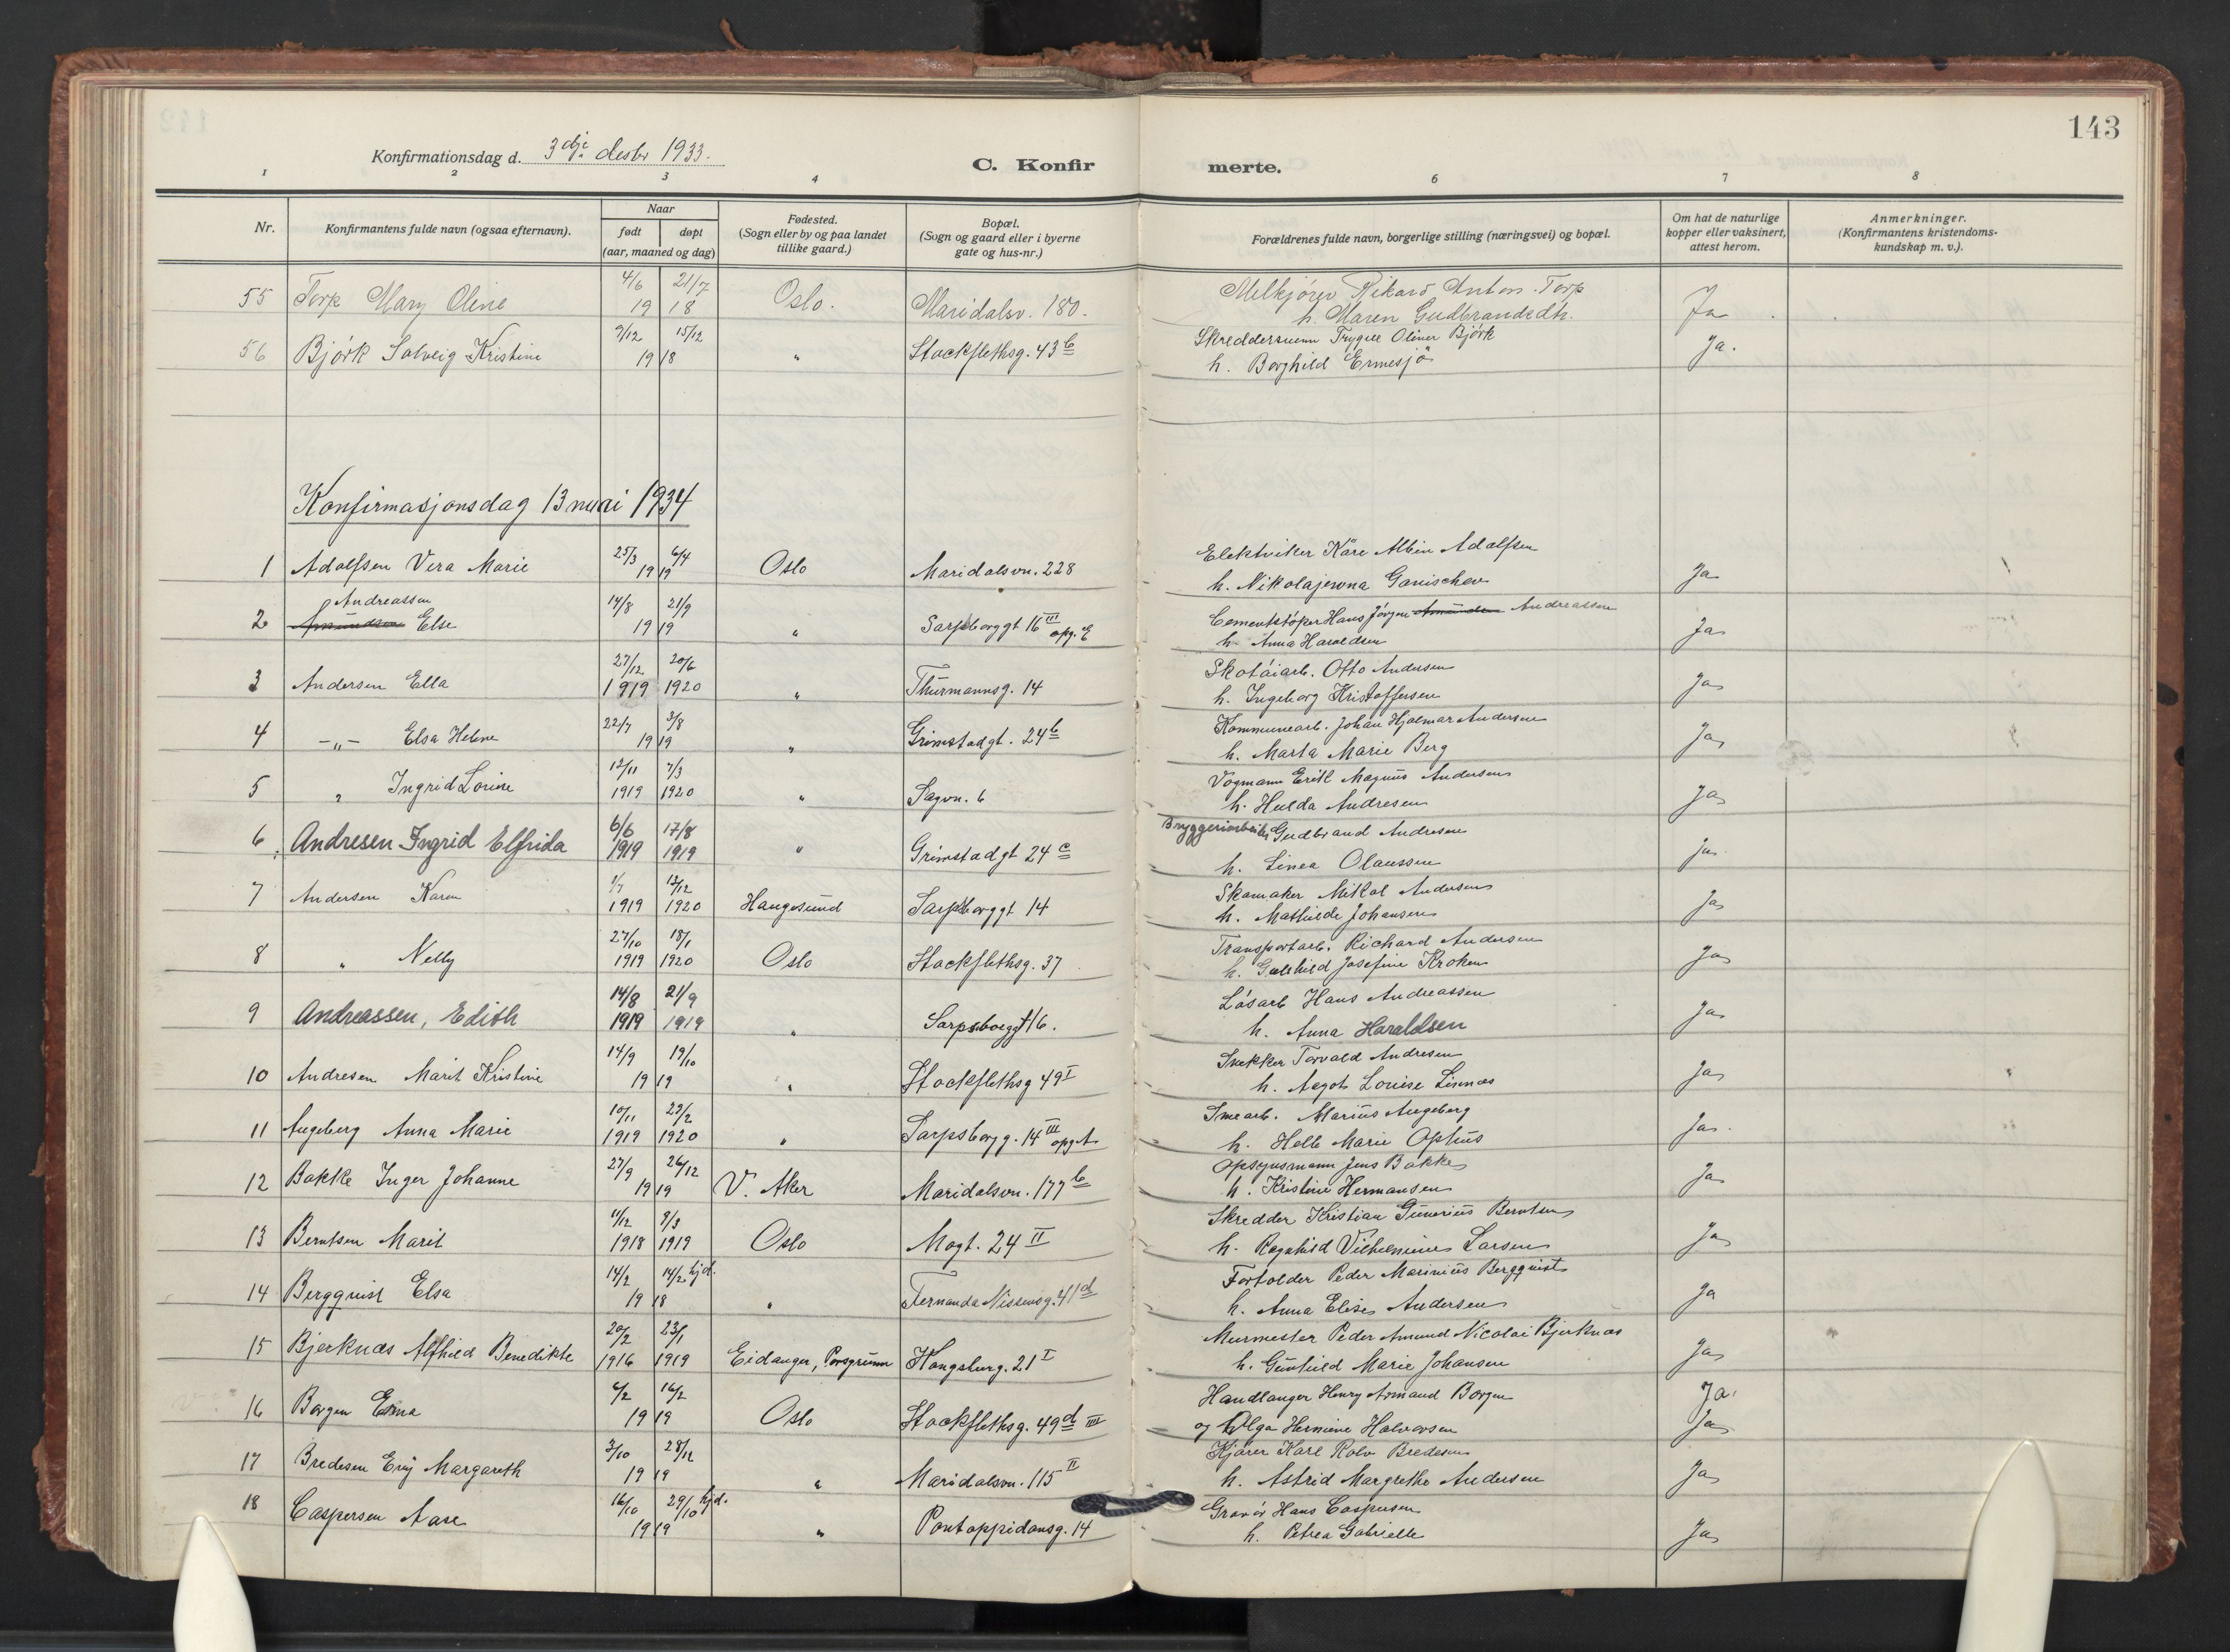 143
Konfirmationsdag d. 3dje desbr 1933.
C. Konfirmerte.
1 2 3 4 6 7 8
Nr.
Konfirmantens fulde navn (ogsaa efternavn).
Naar
født døpt
(aar, maaned og dag)
Fødested.
(Sogn eller by og paa landet
tillike gaard.)
Bopæl.
(Sogn og gaard eller i byerne
gate og hus-nr.)
Forældrenes fulde navn, borgerlige stilling (næringsvei) og bopæl.
Om hat de naturlige
kopper eller vaksinert,
attest herom.
Anmerkninger.
(Konfirmantens kristendoms-
kundskap m. v.).
4/6 21/7 Melkjører Rikard Anton Torp
55 Torp Mary Oline 19 18 Oslo. Maridalsv. 180. h. Maren Gudbrandsdtr. Ja
9/12 15/12 Skreddersvenn Trygve Oliver Björk
56 Björk Solveig Kristine 19 18 " Stockflethsg. 43b h. Borghild Ermesjö Ja.
Konfirmasjonsdag 13 mai 1934
25/3 6/4 Elektriker Kåre Albin Adolfsen
1 Adolfsen Vera Marie 19 19 Oslo Maridalsvn. 228 h. Nikolajewna Ganischev Ja
Andreassen 14/8 21/9 Cementstøper Hans Jörgen Amundsen Andreassen
2 Amundsen Else 19 19 " Sarpsborggt 16 III opg. E h. Anna Haraldsen Ja
27/12 20/6 Skotøiarb. Otto Andersen
3 Andersen Ella 1919 1920 " Thurmannsg. 14 h. Ingeborg Kristoffersen Ja
22/7 3/8 Kommunearb. Johan Hjalmar Andersen
4 -"- Elsa Helene 19 19 " Grimstadgt. 24b h. Marta Marie Berg Ja
12/11 7/3 Vognmann Erik Magnus Andersen
5 " Ingrid Louise 1919 1920 " Sagvn. 6 h. Hulda Andresen Ja
6/6 17/8 Bryggeriarbeider Gudbrand Andresen
6 Andresen Ingrid Elfrida 1919 1919 " Grimstadgt 24c h. Linea Olaussen ja
1/7 13/12 Skomaker Mikal Andersen
7 Andersen Karen 1919 1920 Haugesund Sarpsborggt 14 h. Mathilde Johansen Ja
27/10 18/1 Transportarb. Richard Andersen
8 " Nelly 1919 1920 Oslo Stockflethsg. 37 h. Josefine Kroken Ja
14/8 21/9 Løsarb Hans Andreassen
9 Andreassen, Edith 1919 1919 " Sarpsborggt 16. h. Anna Haraldsen Ja
14/9 19/10 Snekker Torvald Andresen
10 Andresen Marit Kristine 19 19 " Stockflethsg 49 I h. Aagot Louise Linnes Ja
10/11 29/2 Smearb. Marius Augeberg
11 Augeberg Anna Marie 1919 1920 " Sarpsborgg. 14 III opg. A h. Helle Marie Ophus Ja.
27/9 26/12 Opsynsmann Jens Bakke
12 Bakke Inger Johanne 19 19 V. Aker Maridalsvn. 177b h. Kristine Hermansen Ja
11/12 9/3 Skredder Kristian Gunerius Berntsen
13 Berntsen Marit 1918 1919 Oslo Mogt. 24 II h. Ragnhild Vilhelmine Larsen Ja
14/2 14/2 hjd. Fortolder Peder Marinius Bergquist
14 Bergquist Elsa 19 18 " Fernanda Nissensg. 41d h. Anna Elise Andersen Ja
20/2 23/1 Murmester Peder Amund Nicolai Bjerknæs
15 Bjerknæs Alfhild Benedikte 1916 1919 Eidanger, Porsgrunn Kongsberg. 21 I h. Gunhild Marie Johansen Ja
6/2 16/2 Handlanger Henry Armand Borgen Ja.
16 Borgen Erna 19 19 Oslo Stockflethsg. 49d III og Olga Hermine Halvorsen Ja
3/10 28/12 Kjører Karl Rolv Bredesen
17 Bredesen Eng Margareth 19 19 " Maridalsvn. 115 II h. Astrid Margrethe Andersen Ja
16/10 29/10 hjd. Gravør Hans Caspersen
18 Caspersen Aase 19 19 " Pontoppidansg. 14 h. Petrea Gabrielle Ja